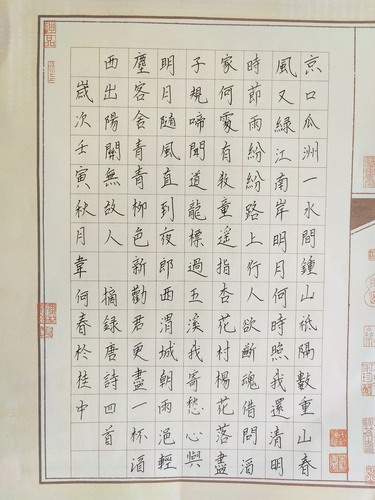 京口瓜洲一水間鍾山祗隔數重山春
風又綠江南岸明月何時照我還清明
時節雨紛紛路上行人欲斷魂借問酒
家何處有牧童遙指杏花村楊花落盡
子規啼聞道龍標過五溪我寄愁心與
明月隨風直到夜郎西渭城朝雨浥輕
塵客舍青青柳色新勸君更盡一杯酒
西出陽關無故人 摘錄唐詩四首
歲次壬寅秋月韋何春於桂中